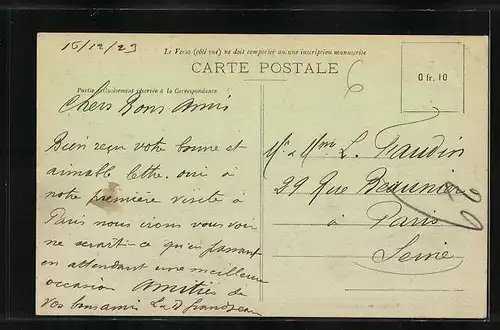 16/12/23
Le Verso (côté vue) ne doit comporter aucune inscription manuscrite
CARTE POSTALE
0 fr. 10
6
Partie exclusivement réservée à la Correspondance
Chers Bons Amis
Bien reçu votre bonne et
aimable lettre. oui à
notre première visite à
Paris nous irons vous voir
ne serait-ce qu'en passant
en attendant une meilleure
occasion Amitiés de
vos bons amis
Mr & Mme L. Faudin
39 Rue Beaunier
à Paris
Seine